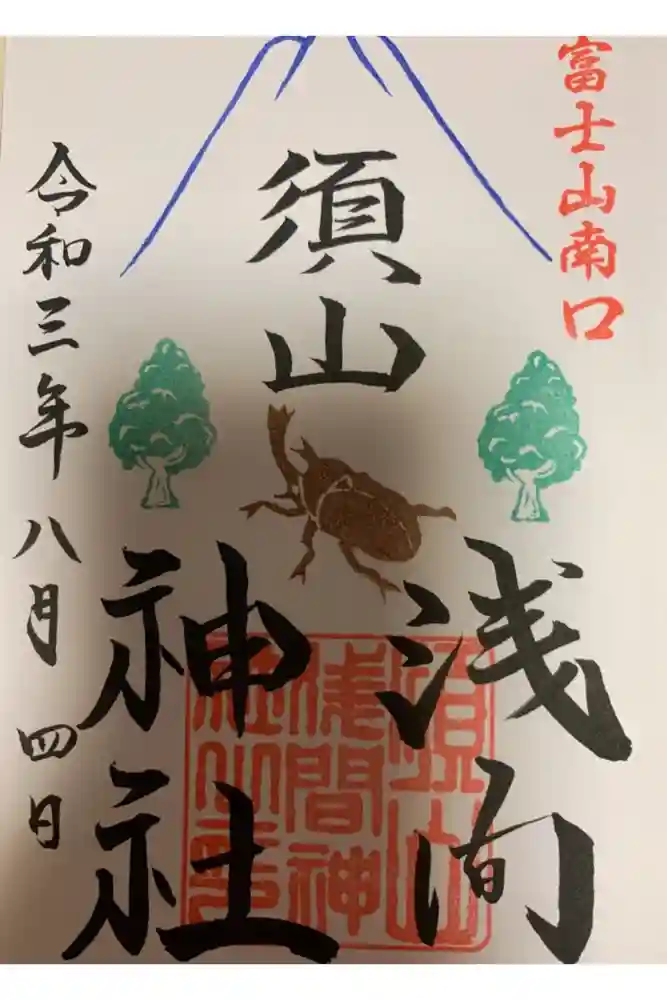 富士山南口
須山
浅間
神社
令和三年八月四日
須山
浅間神
社之